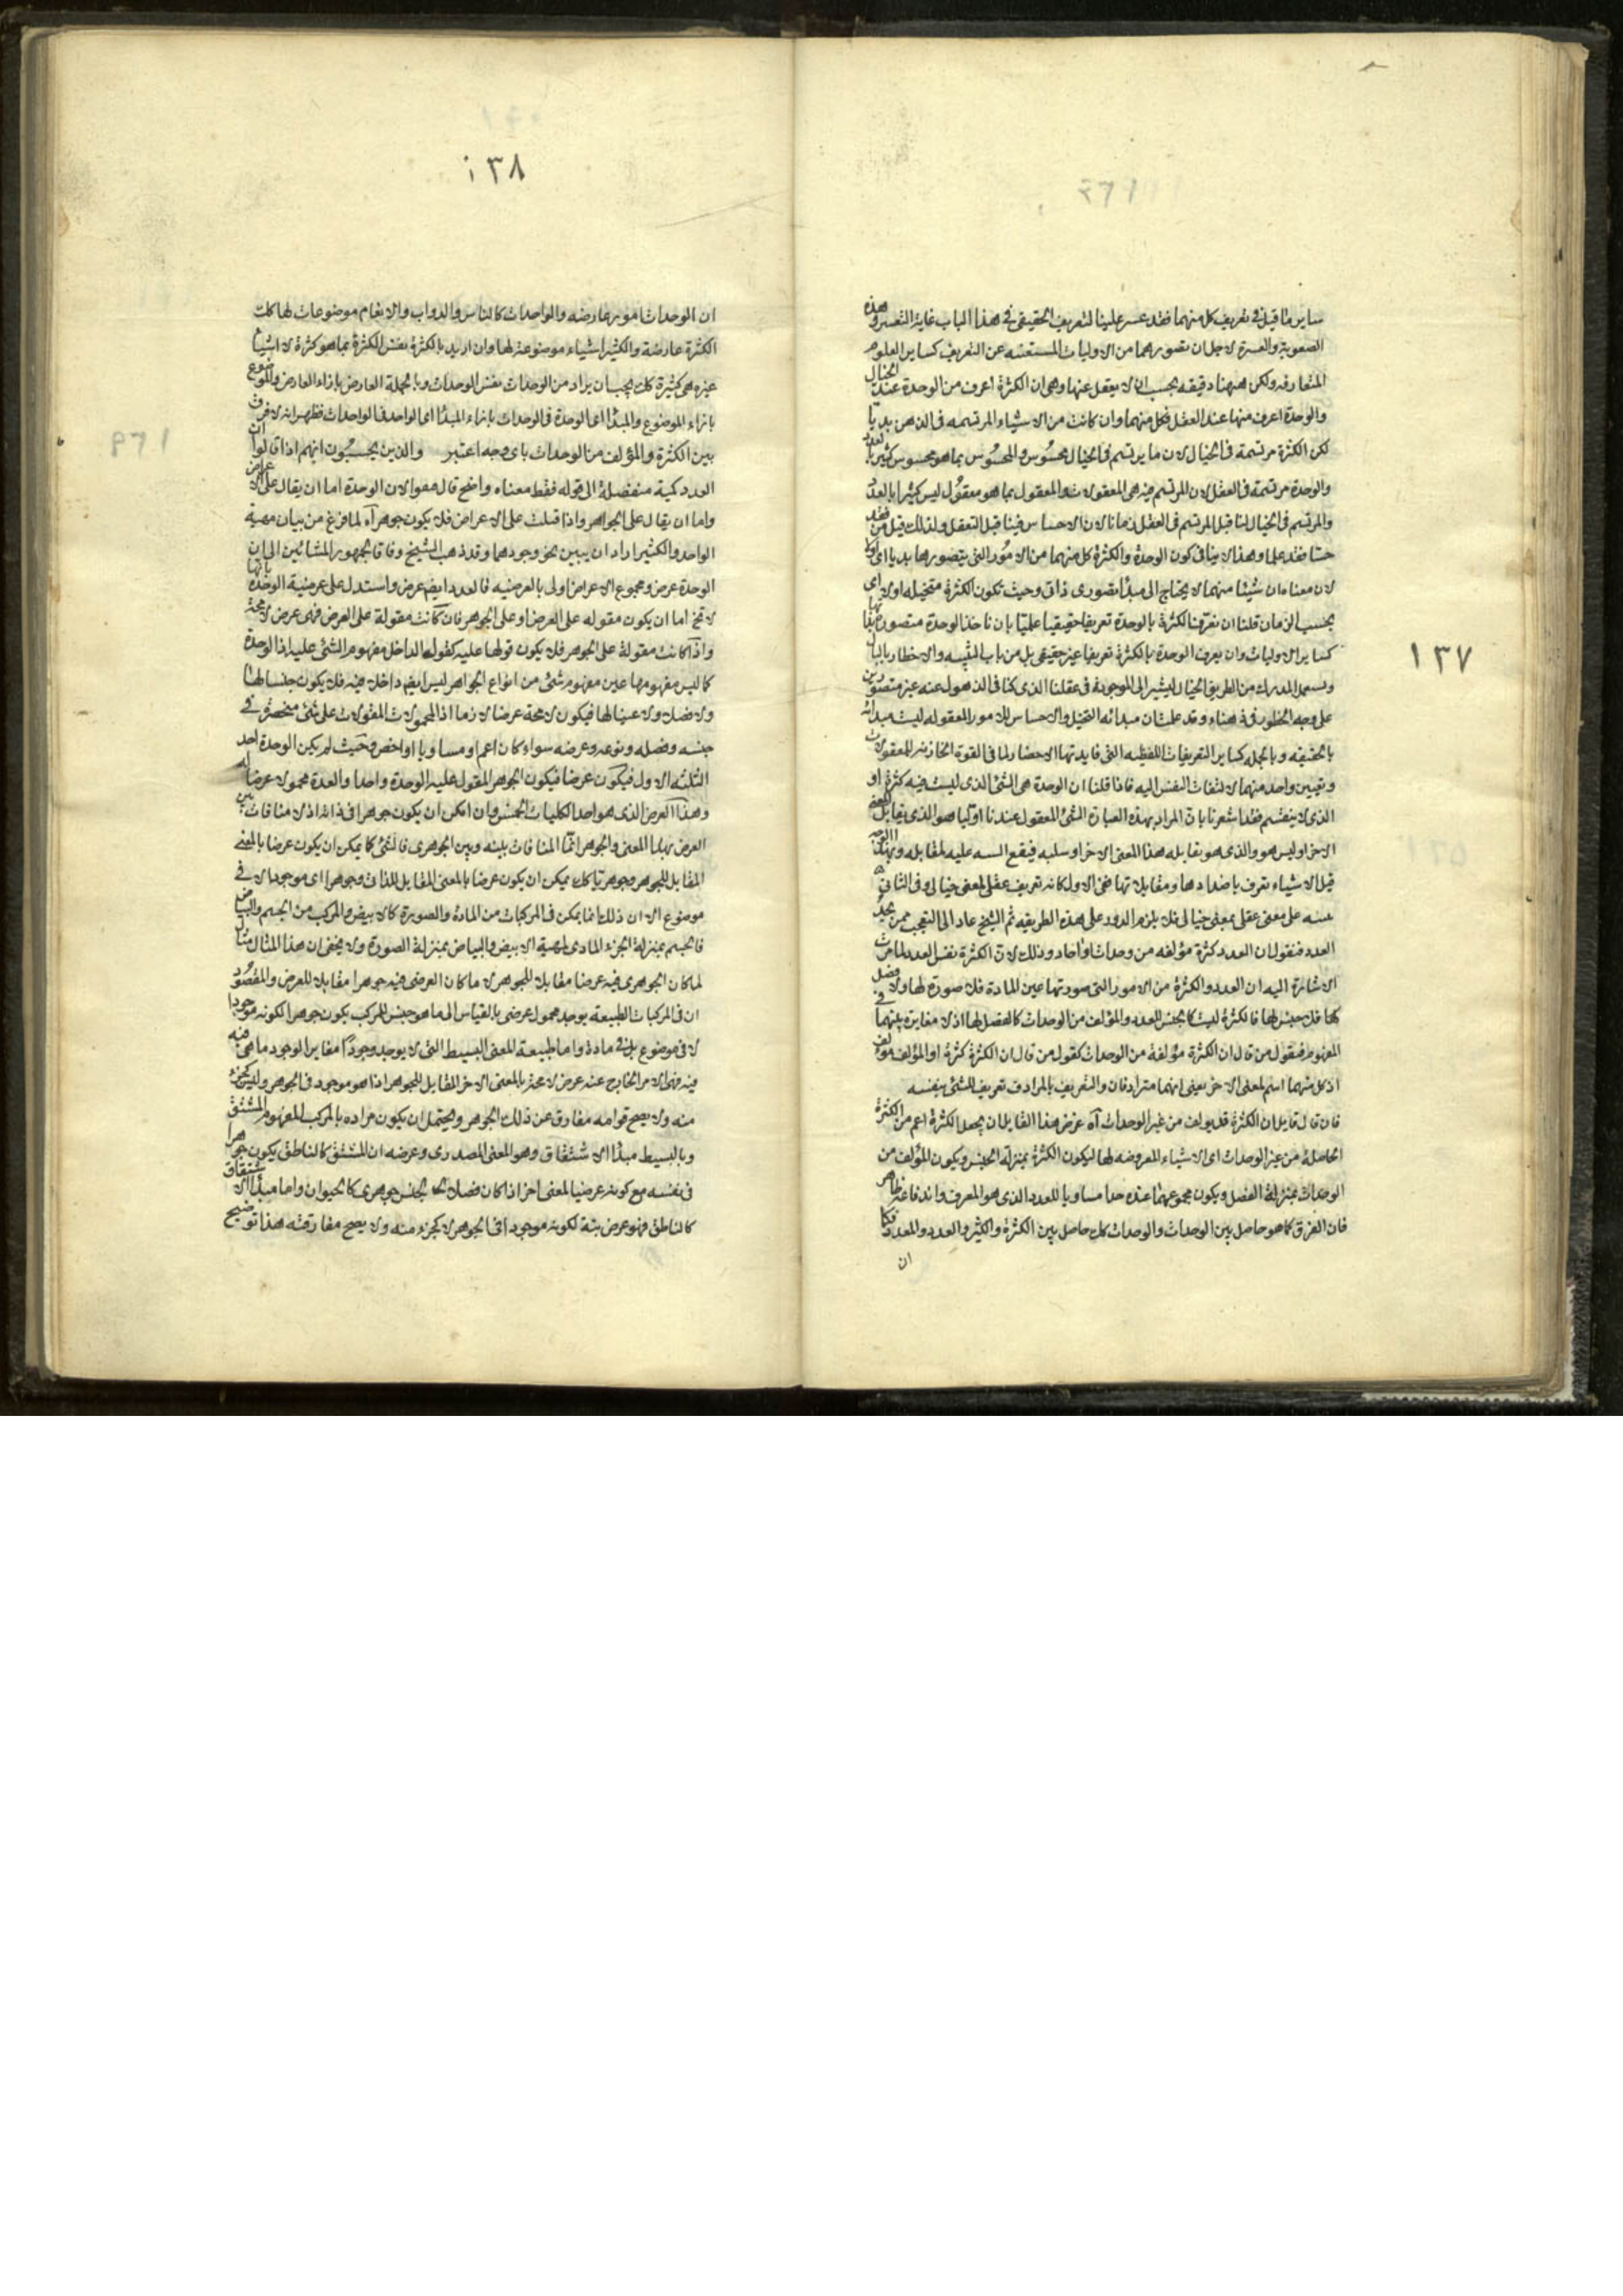 ١٣٧
ساير ما قيل فى تعريف كل منهما فقد عسر علينا التعريف الحقيقى فى هذا الباب غاية التعسر وهذه
الصعوبة والعسرة لاجل ان تصورهما من الاوليات المستغنيه عن التعريف كساير العلوم
المتعارفه ولكن ههنا دقيقه يجب ان لا يغفل عنها وهى ان الكثرة اعرف من الوحدة عند الخيال
والوحدة اعرف منها عند العقل فكل منهما وان كانت من الاشياء المرتسمه فى الذهن بديا
لكن الكثرة مرتسمة فى الخيال لان ما يرتسم فى الخيال محسوس والمحسوس بما هو محسوس كثير بالعدد
والوحدة مرتسمة فى العقل لان المرتسم فيه هى المعقولات والمعقول بما هو معقول ليس كثيرا بالعدد
والمرتسم فى الخيال لنا قبل المرتسم فى العقل زمانا لان الاحساس فينا قبل التعقل ولذلك قيل من فقد
حسا فقد علما وهذا لا ينافى كون الوحدة والكثرة كل منهما من الامور التى يتصورها بديا اى اولا
لان معناه ان شيئا منهما لا يحتاج الى مبدأ تصورى ذاتى وحيث تكون الكثرة متخيله اولا اى
بحسب الزمان قلنا ان نعرف الكثرة بالوحدة تعريفا حقيقيا عقليا بان ناخذ الوحدة متصورة بذاتها
كساير الاوليات وان يعرف الوحدة بالكثرة تعريفا غير حقيقى بل من باب التنبيه والاخطار بالبال
ويستعمل المدرك من الطريق الخيال ليشير الى الموجودة فى عقلنا الذى كنا فى الذهول عنه غير متصورين
على وجه الخطور فى ذهننا وقد علمت ان مبدائه التخيل والاحساس للامور المعقوله ليست مبدائه
بالحقيقه وبالجمله كساير التعريفات اللفظيه التى فايدتها الاحضار لما فى القوة الخازنه للمعقولات
وتعيين واحد منهما لالتفات النفس اليه فاذا قلنا ان الوحدة هى الشئ الذى ليست فيه كثرة او
الذى لا ينقسم فقد اشعرنا بان المراد بهذه العبارة الشئ المعقول عندنا اوليا هو الذى يقابل المعنى
الاخر او ليس هو والذى هو يقابله هذا المعنى الاخر او سلبه فيقع التنبيه عليه لمقابله وبهذا الوجه
قيل الاشياء تعرف باضدادها ومقابلاتها ففى الاول كانه تعريف عقلى لمعنى خيالى وفى الثانى
تنبيه على معنى عقلى بمعنى خيالى فلا يلزم الدور على هذه الطريقه ثم الشيخ عاد الى التعجب ممن يحد
العدد فنقول ان العدد كثرة مؤلفه من وحدات او احاد وذلك لان الكثرة نفس العدد لما مرت
الاشارة اليه ان العدد والكثرة من الامور التى صورتها عين المادة فلا صورة لها ولا فصل
لها فلا جنس لها فالكثرة ليست كالجنس للعدد والمؤلف من الوحدات كالفصل لها اذ لا مغايرة بينهما فى
المفهوم فيقول من قال ان الكثرة مؤلفة من الوحدات كقول من قال ان الكثرة كثرة او المؤلف مؤلف
اذ كل منهما اسم لمعنى الاخر يعنى انهما مترادفان والتعريف بالمرادف تعريف للشئ بنفسه
فان قال قايل ان الكثرة قد يؤلف من غير الوحدات آه غرض هذا القايل ان يجعل الكثرة اعم من الكثرة
الحاصلة من غير الوحدات اى الاشياء المعروضه لها ليكون الكثرة بمنزلة الجنس ويكون المؤلف من
الوحدات بمنزلة الفصل ويكون مجموعهما عنده حدا مساويا للعدد الذى هو المعرف واندفاعه ظاهر
فان الفرق كما هو حاصل بين الوحدات والوحدات كك حاصل بين الكثرة والكثير والعدد والمعدود فكما
ان
١٣٨
ان الوحدات امور عارضه والواحدات كالناس والدواب والانعام موضوعات لها كك
الكثرة عارضة والكثير اشياء موضوعة لها وان اريد بالكثرة نفس الكثرة بما هو كثرة لا اشياء
غيره هى كثيرة كك يجب ان يراد من الوحدات نفس الوحدات وبالجملة العارض بازاء العارض والموضوع
بازاء الموضوع والمبدأ اى الوحدة فى الوحدات بازاء المبدأ اى الواحد فى الواحدات فظهر انه لا فرق
بين الكثرة والمؤلف من الوحدات باى وجه اعتبر والذين يحسبون انهم اذا قالوا ان
العدد كمية منفصلة الى قوله فقط معناه واضح قال معوا لان الوحدة اما ان يقال على الاعراض
واما ان يقال على الجواهر واذا قيلت على الاعراض فلا يكون جوهرا آه لما فرغ من بيان مهية
الواحد والكثير اراد ان يبين نحو وجودهما وقد ذهب الشيخ وفاقا لجمهور المشائين الى ان
الوحدة عرض ومجموع الاعراض اولى بالعرضيه فالعدد ايضم عرض واستدل على عرضية الوحدة بانها
لا تخ اما ان يكون مقوله على العرض او على الجوهر فان كانت مقولة على العرض فهى عرض لا محة
واذا كانت مقولة على الجوهر فلا يكون قولها عليه كقول الداخل مفهوم الشئ عليه اذ الوحدة
كما ليس مفهومها عين مفهوم شئ من انواع الجواهر ليس ايضم داخلا فيه فلا يكون جنسا لها
ولا فصلا ولا عينا لها فيكون لا محة عرضا لازما اذ المحمولات المقولات على شئ منحصرة فى
جنسه وفصله ونوعه وعرضه سواء كان اعم او مساويا او اخص وحيث لم يكن الوحدة احد
الثلثه الاول فيكون عرضا فيكون الجوهر المقول عليه الوحدة واحدا والعدة محمولا عرضا له
وهذا العرض الذى هو احد الكليات الخمس وان امكن ان يكون جوهرا فى ذاته اذ لا منافات بين
العرض بهذا المعنى والجوهر انما المنافات بينه وبين الجوهرى فالشئ كما يمكن ان يكون عرضا بالمعنى
المقابل للجوهر وجوهريا كك يمكن ان يكون عرضا بالمعنى المقابل للذاتى وجوهرا اى موجودا لا فى
موضوع الا ان ذلك انما يمكن فى المركبات من المادة والصورة كالابيض والمركب من الجسم والبياض
فالجسم بمنزلة الجزء المادى لمهية الابيض والبياض بمنزلة الصورة ولا يخفى ان هذا المثال مثال
لما كان الجوهرى فيه عرضا مقابلا للجوهر لا ما كان العرضى فيه جوهرا مقابلا للعرض والمقصود
ان فى المركبات الطبيعة يوجد محمول عرضى بالقياس الى ما هو جنس للمركب يكون جوهرا لكونه موجودا
لا فى موضوع بل فى مادة واما طبيعة المعنى البسيط التى لا يوجد وجودا مغايرا لوجود ما هى فيه
فيه فهى الامر الخارج عنه عرض لا محة بالمعنى الاخر المقابل للجوهر اذ هو موجود فى الجوهر وليس كجزء
منه ولا يصح قوامه مفارق عن ذلك الجوهر ويحتمل ان يكون مراده بالمركب المفهوم المشتق
وبالبسيط مبدأ الاشتقاق وهو المعنى المصدرى وغرضه ان المشتق كالناطق يكون جوهرا
فى نفسه مع كونه عرضيا لمعنى اخر اذا كان فصلا لجنس جوهرى كالحيوان واما مبدأ الاشتقاق
كالناطق فهو عرض بتة لكونه موجودا فى الجوهر لا كجزء منه ولا يصح مفارقته هذا توضيح